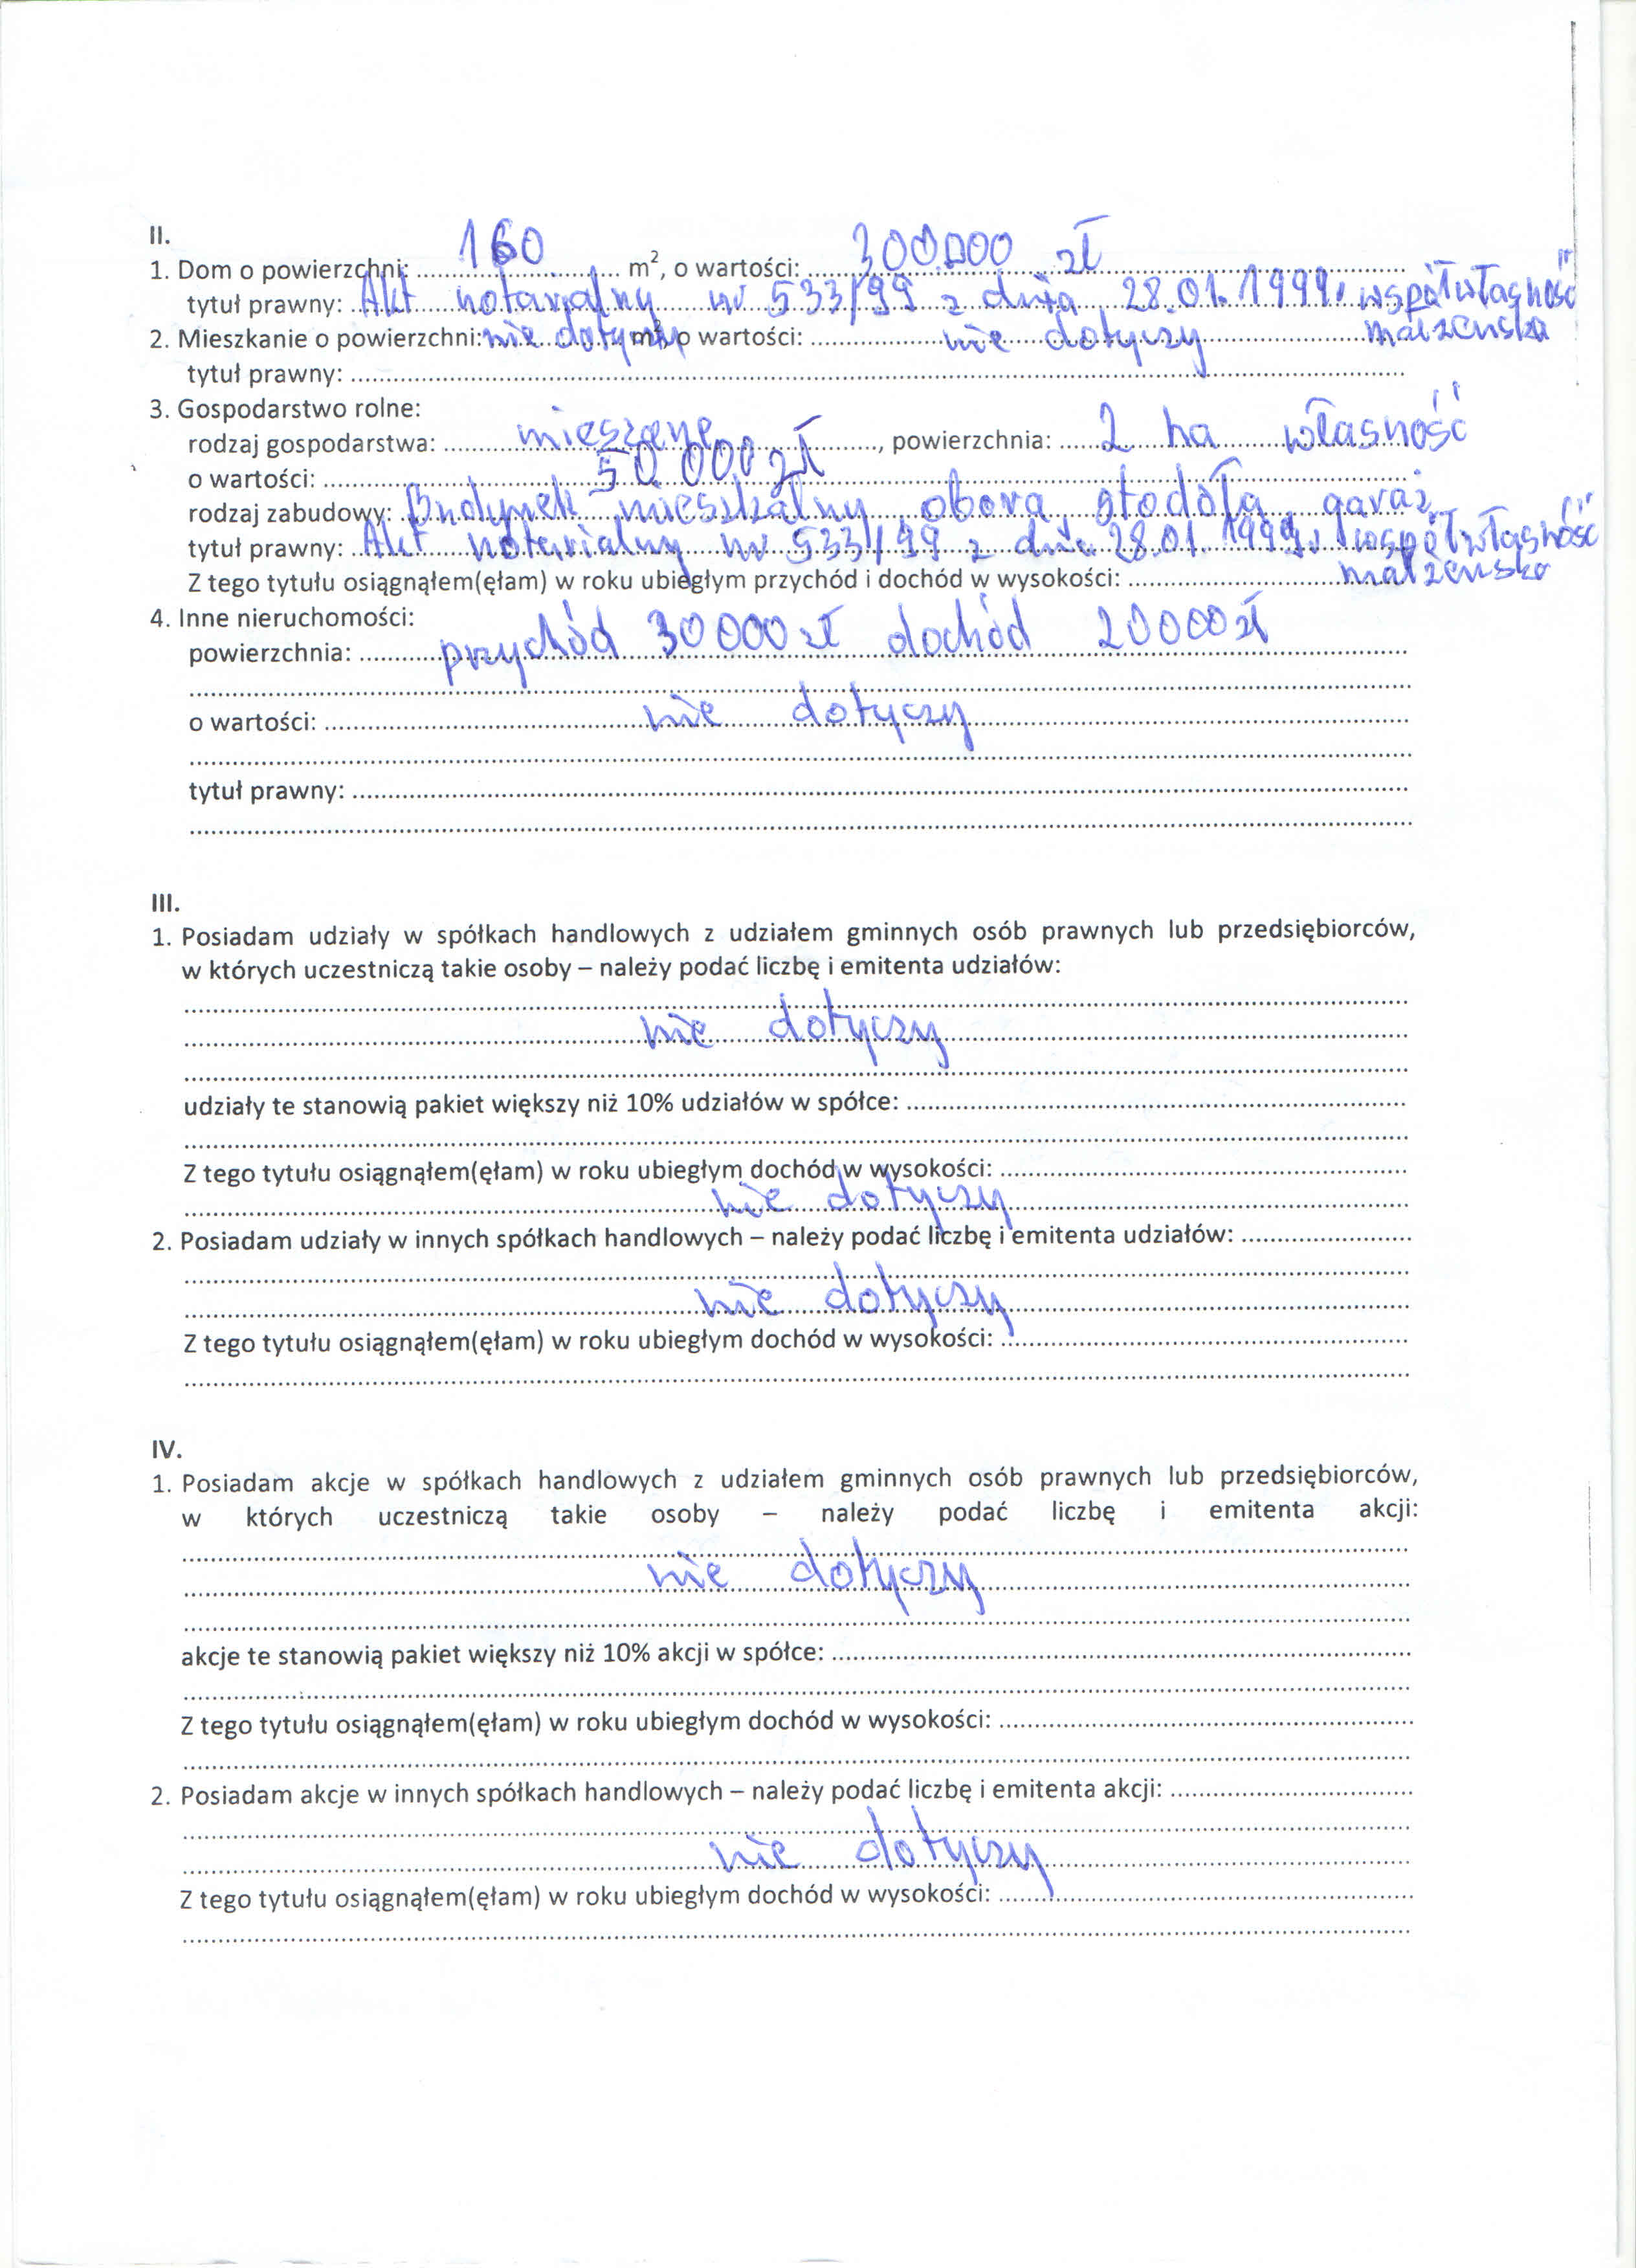 II.
1. Dom o powierzchni: 160 m², o wartości: 300.000 zł
tytuł prawny: Akt notarialny nr 533/99 z dnia 28.01.1999r współwłasność
małżeńska
2. Mieszkanie o powierzchni: nie dotyczy m², o wartości: nie dotyczy
tytuł prawny:
3. Gospodarstwo rolne:
rodzaj gospodarstwa: mieszane, powierzchnia: 2 ha własność
o wartości: 50 000 zł
rodzaj zabudowy: Budynek mieszkalny, obora, stodoła, garaż
tytuł prawny: Akt notarialny nr 533/99 z dnia 28.01.1999r współwłasność
małżeńska
Z tego tytułu osiągnąłem(ęłam) w roku ubiegłym przychód i dochód w wysokości:
4. Inne nieruchomości:
powierzchnia: przychód 30 000 zł dochód 20000 zł
o wartości: nie dotyczy
tytuł prawny:
III.
1. Posiadam udziały w spółkach handlowych z udziałem gminnych osób prawnych lub przedsiębiorców,
w których uczestniczą takie osoby – należy podać liczbę i emitenta udziałów:
nie dotyczy
udziały te stanowią pakiet większy niż 10% udziałów w spółce:
Z tego tytułu osiągnąłem(ęłam) w roku ubiegłym dochód w wysokości:
nie dotyczy
2. Posiadam udziały w innych spółkach handlowych – należy podać liczbę i emitenta udziałów:
nie dotyczy
Z tego tytułu osiągnąłem(ęłam) w roku ubiegłym dochód w wysokości:
IV.
1. Posiadam akcje w spółkach handlowych z udziałem gminnych osób prawnych lub przedsiębiorców,
w których uczestniczą takie osoby – należy podać liczbę i emitenta akcji:
nie dotyczy
akcje te stanowią pakiet większy niż 10% akcji w spółce:
Z tego tytułu osiągnąłem(ęłam) w roku ubiegłym dochód w wysokości:
2. Posiadam akcje w innych spółkach handlowych – należy podać liczbę i emitenta akcji:
nie dotyczy
Z tego tytułu osiągnąłem(ęłam) w roku ubiegłym dochód w wysokości: